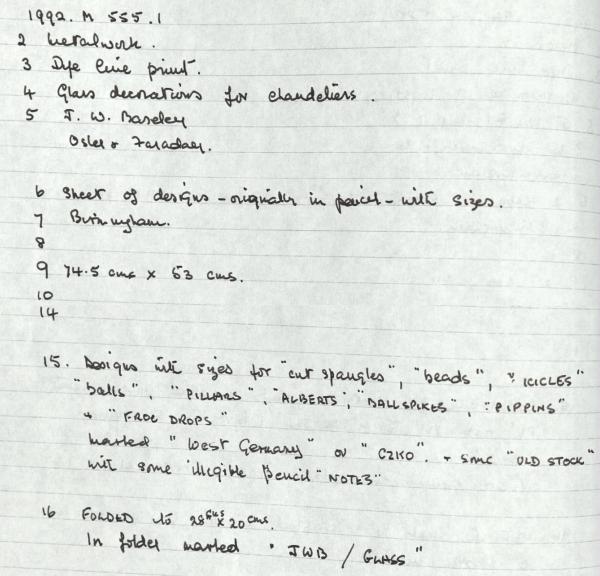 1992. M 555.1
2 Metalwork.
3 Dye line print.
4 Glass decorations for chandeliers.
5 J. W. Baseley
Osler & Faraday.
6 Sheet of designs - originally in pencil - with sizes.
7 Birmingham.
8
9 74.5 cms x 53 cms.
10
14
15. Designs with sizes for "cut spangles", "beads", "ICICLES"
"balls", "PILLARS", "ALBERTS", "BALLSPIKES", "PIPPINS"
+ "FROG DROPS"
marked "West Germany" or "CZKO". + some "OLD STOCK"
with some illegible pencil "NOTES"
16 FOLDED to 28cms x 20cms.
In folder marked "JWB / GLASS"